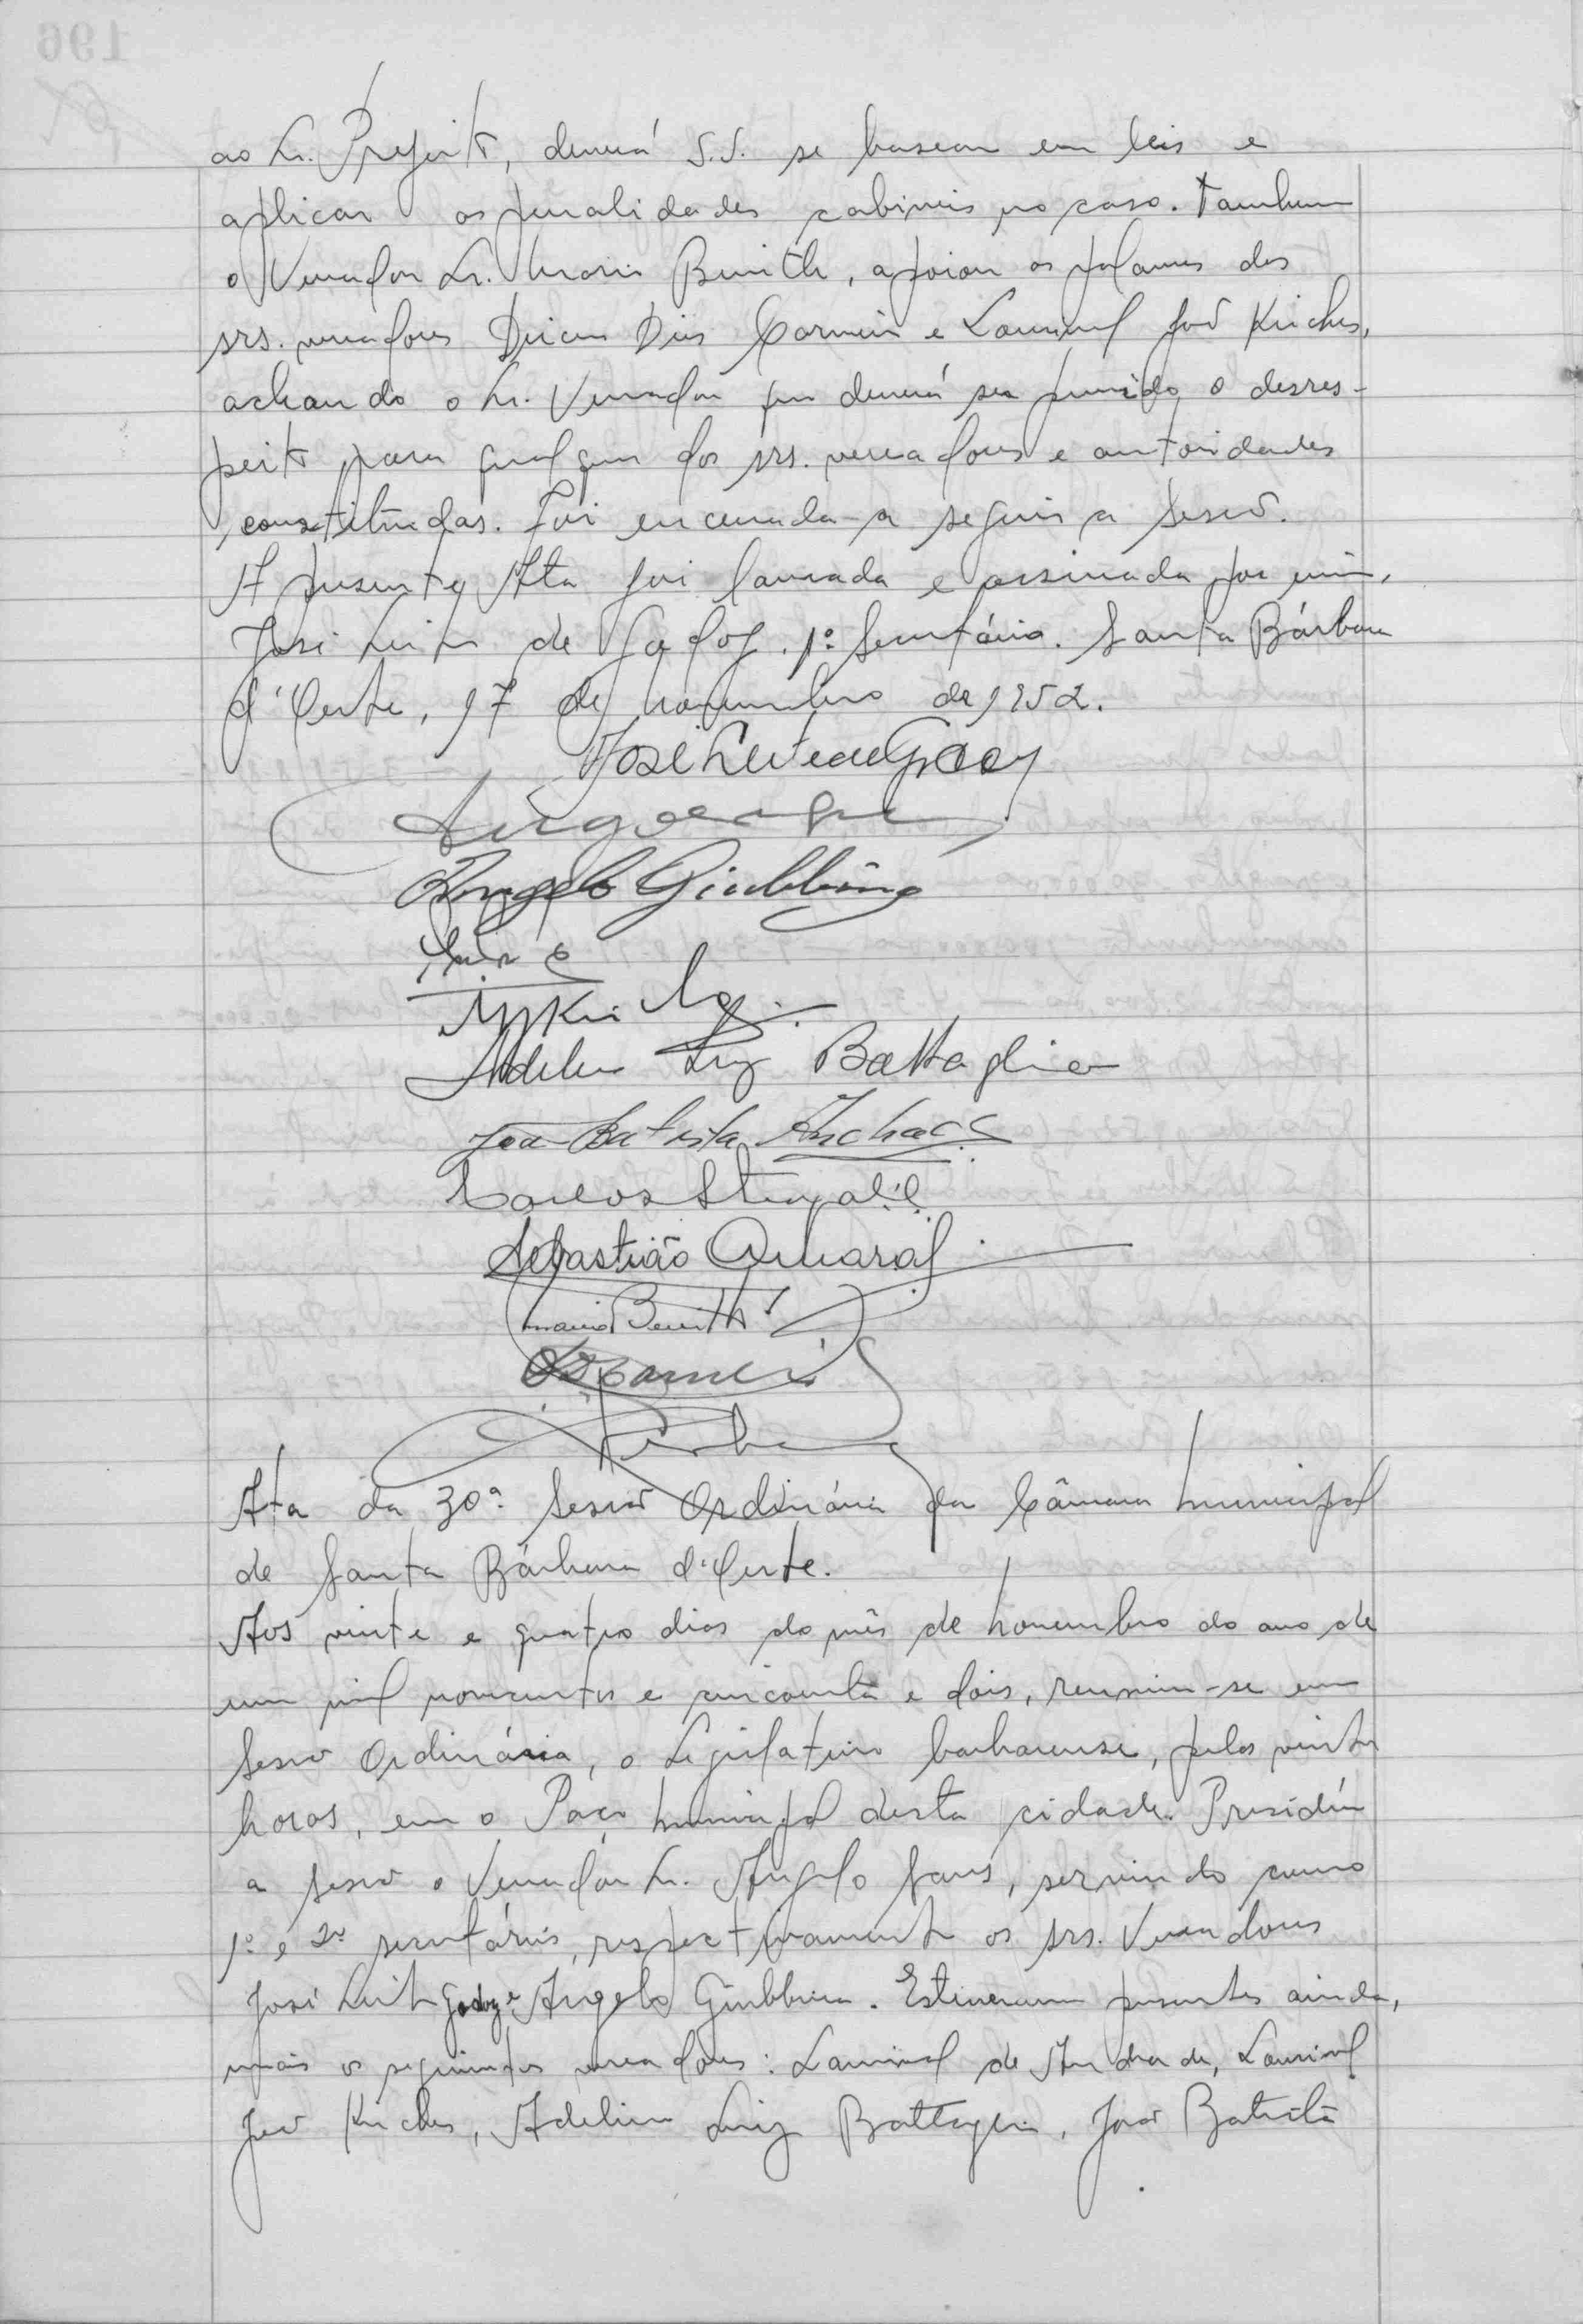 ao Sr. Prefeito, deverá S.S. se basear em leis e
aplicar as penalidades cabiveis no caso. Tambem
o Vereador Sr. Mario Benith, apoiou as palavras dos
srs. vereadores Dirceu Dias Carneiro e Lourival José Kirches,
achando o Sr. Vereador que deverá ser punido o desres-
peito para qualquer dos srs. vereadores e autoridades
constituidas. Foi encerrada a seguir a Sessão.
A presente Ata foi lavrada e assinada por mim,
José Leite de Godoy. 1º Secretário. Santa Bárbara
d'Oeste, 17 de novembro de 1952.
José Leite de Godoy
Angelo Giubbina
Adelino Luiz Battaglia
João Batista
Carlos Steagall
Sebastião Amaral
Mario Benith
Ata da 30ª Sessão Ordinária da Câmara Municipal
de Santa Bárbara d'Oeste.
Aos vinte e quatro dias do mês de novembro do ano de
um mil novecentos e cincoenta e dois, reuniu-se em
Sessão Ordinária, o Legislativo barbarense, pelas vinte
horas, em o Paço Municipal desta cidade. Presidiu
a Sessão o Vereador Sr. Angelo Sans, servindo como
1º e 2º secretários, respectivamente os srs. Vereadores
José Leite Godoy e Angelo Giubbina. Estiveram presentes ainda,
mais os seguintes vereadores: Lourival de Andrade, Lourival
José Kirches, Adelino Luiz Battaglia, João Batista
196